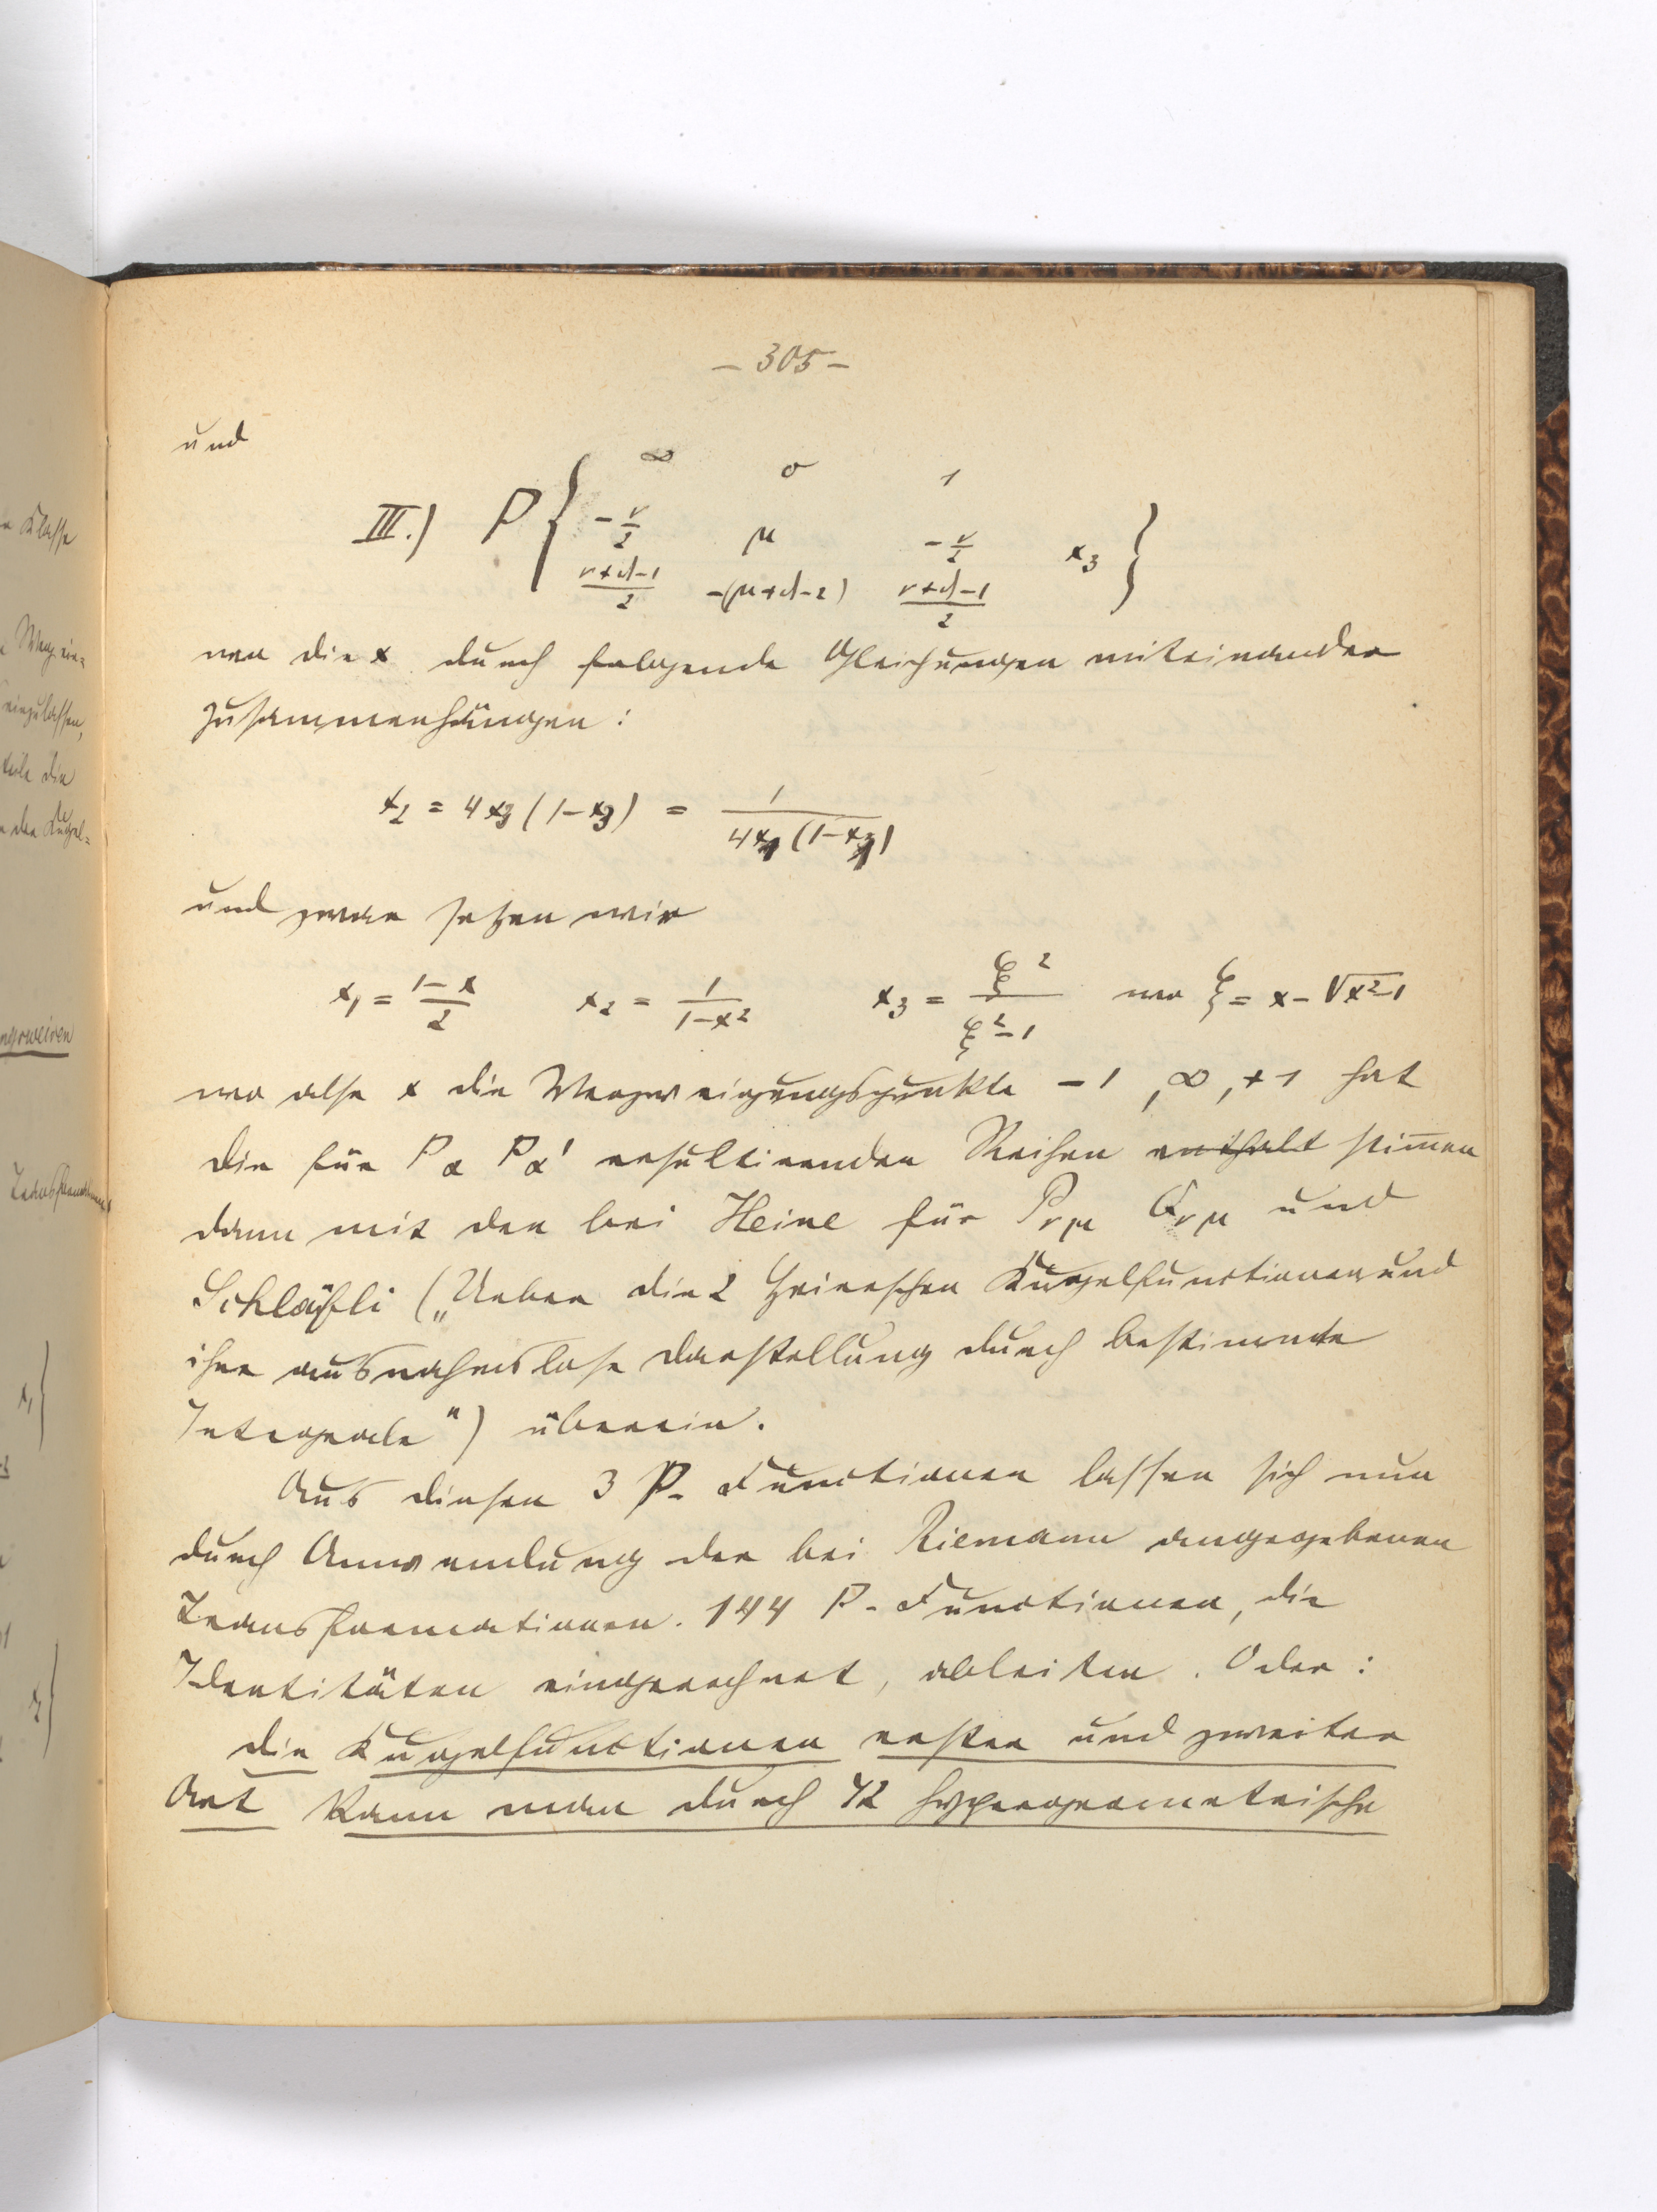 – 305 –
und
III.) P { ∞ 0 1
-ν/2 μ -ν/2 x₃ }
(ν+d-1)/2 -(μ+d-2) (ν+d-1)/2
wo die x durch folgende Gleichungen miteinander
zusammenhängen:
x₂ = 4x₃(1-x₃) = 1/(4x₁(1-x₁))
und zwar setzen wir
x₁ = (1-x)/2 x₂ = 1/(1-x²) x₃ = ξ²/(ξ²-1) wo ξ = x-√(x²-1)
wo also x die Verzweigungspunkte -1, ∞, +1 hat
die für Pα Pα' resultirenden Reihen enthält stim̅en
dann mit den bei Heine für Pνμ Qνμ und
Schläfli („Ueber die 2 Heineschen Kugelfunctionen und
ihre ausnahmslose Darstellung durch bestimmte
Integrale") überein.
Aus diesen 3 P-Functionen lassen sich nun
durch Anwendung der bei Riemann angegebenen
Transformationen. 144 P-Functionen, die
Identitäten eingerechnet, ableiten. Oder:
die Kugelfunctionen erster und zweiter
Art kann man durch 72 hypergeometrische
Klasse
einzulassen,
teile die